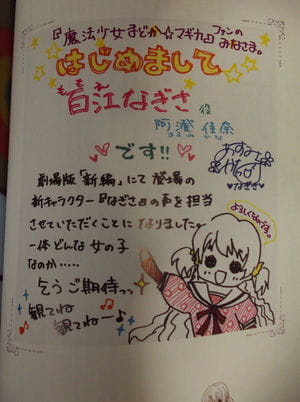 『魔法少女まどか☆マギカ』ファンの
みなさま。
はじめまして
ももえ
百江なぎさ 役
阿澄 佳奈
あすみ かな
です!!
なぎさ
劇場版「新編」にて登場の
新キャラクター『なぎさ』の声を担当
させていただくことになりました。
一体どんな女の子
なのか……
乞うご期待っっ
観てね
観てねー♪
よろしくなのです。